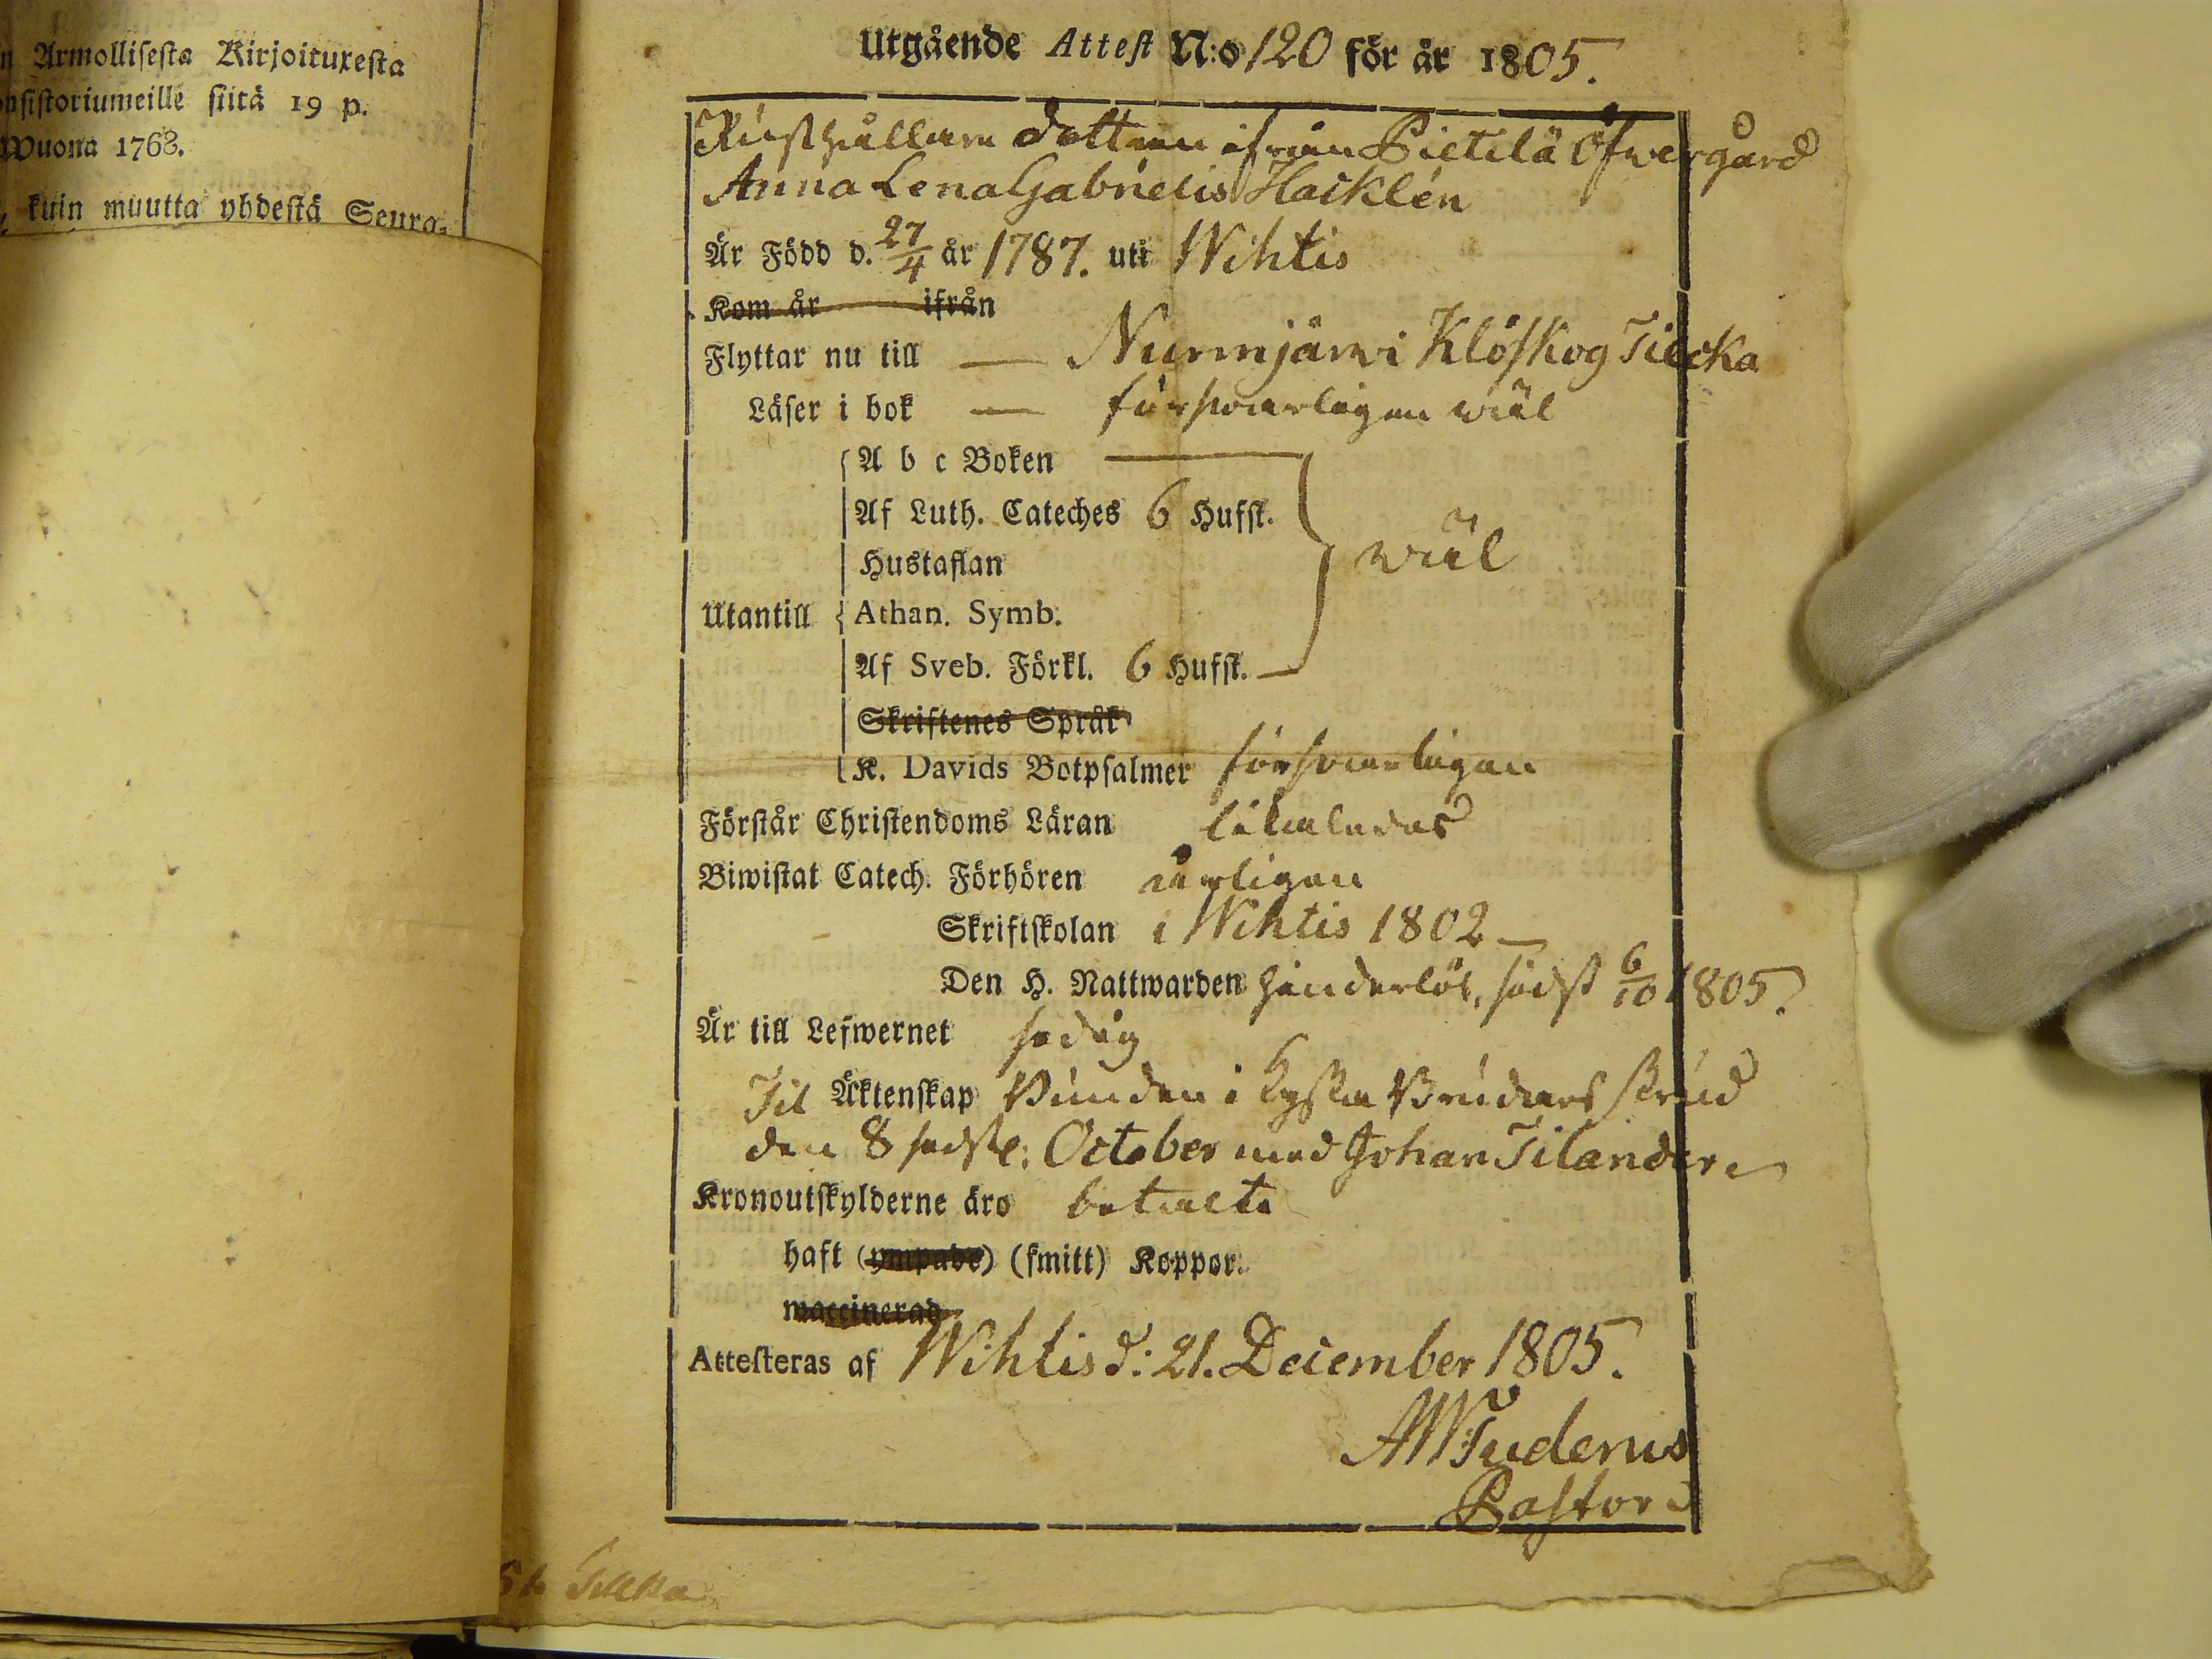 n Armollisesta Kirjoituxesta
onsistoriumeille siitä 19 p.
Wuona 1763.
, kuin muutta yhdestä Seura-
Utgående Attest N:o 120 för år 1805.
Rusthållare dottren ifrån Pietilä Öfwergård
Anna Lena Gabrielis Hacklén
Är Född d. 27/4 år 1787. uti Wihtis
Kom år ifrån
Flyttar nu till — Nurmjärwi Klöfskog Tilcka
Läser i bok — försvarligen wäl
A b c Boken
Af Luth. Cateches 6 Hufst.
Hustaflan
wäl
Utantill Athan. Symb.
Af Sveb. Förkl. 6 Hufst.
Skriftenes Språk
K. Davids Botpsalmer försvarligen
Förstår Christendoms Läran likaledes
Biwistat Catech. Förhören årligen
Skriftskolan i Wihtis 1802
Den H. Nattwarden hinderlös, sidst 6/10 1805.
Är till Lefwernet sedig
Til Äktenskap Bunden i Kyrkio Brudars skrud
den 8 sidstl: October med Johan Tilander
Kronoutskylderne äro betalte
haft (ympade) (smitt) Koppor.
waccinerad
Attesteras af Wihtis d: 21. December 1805.
AWTudérus
Pastor